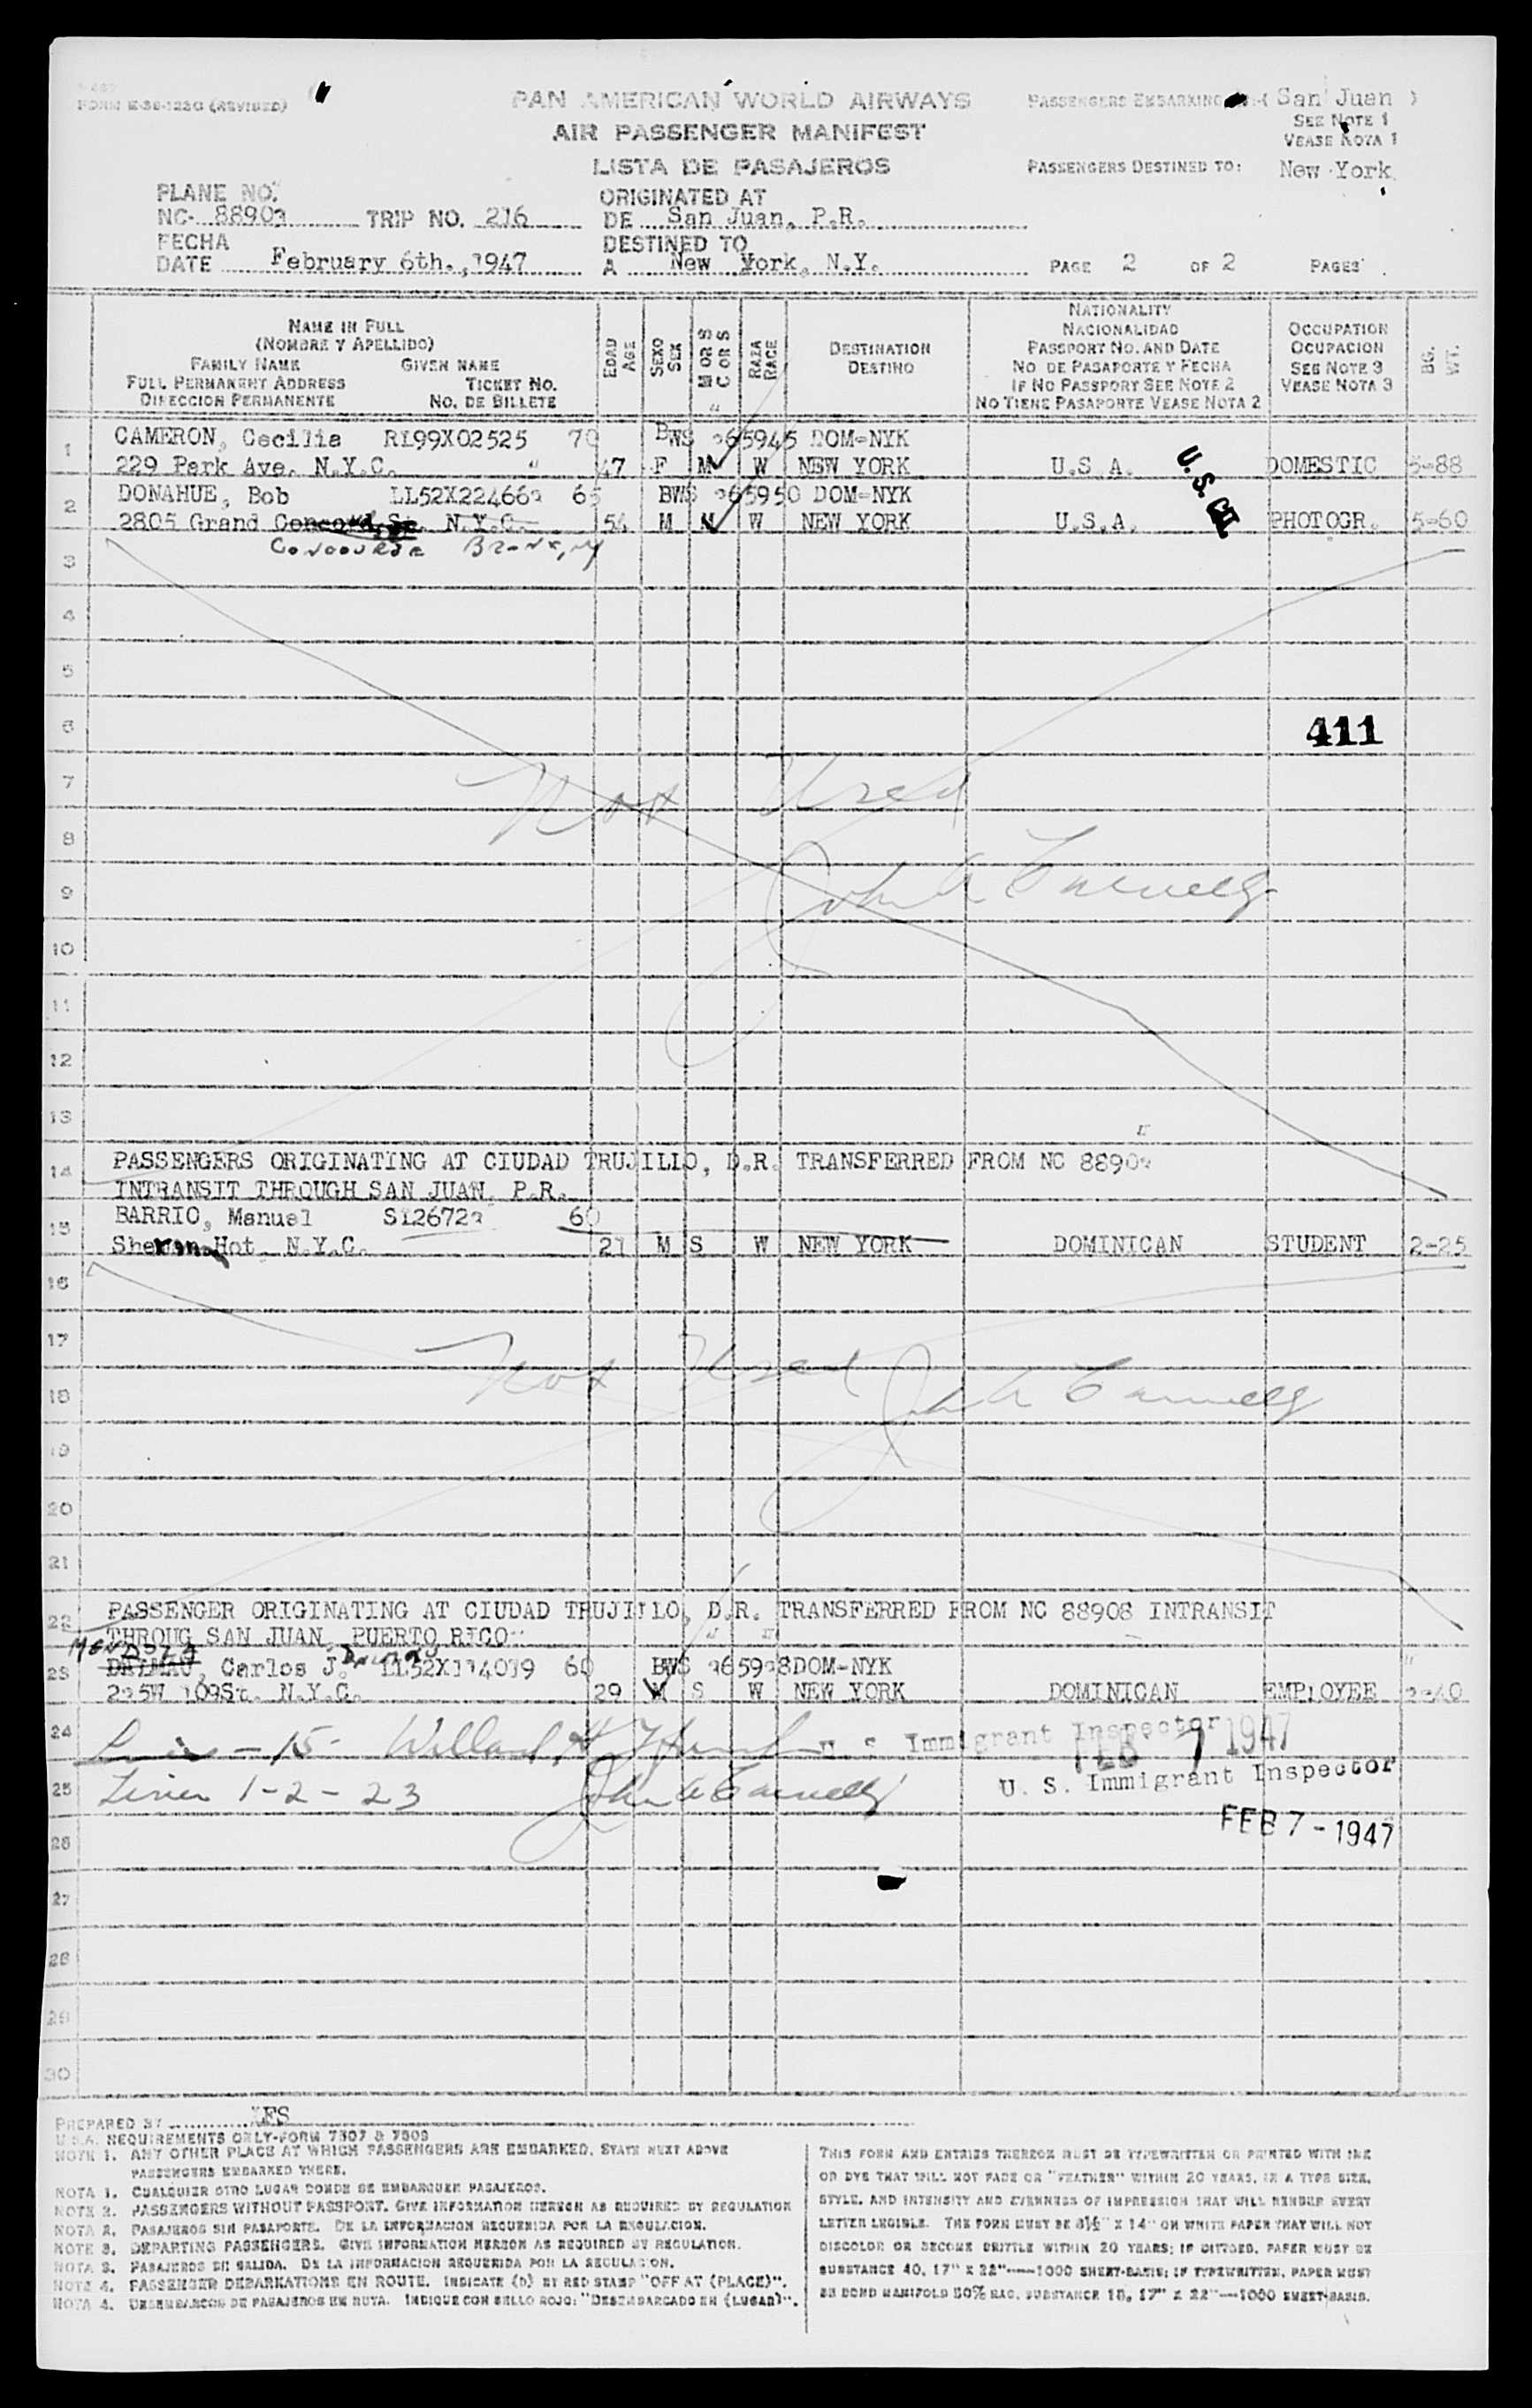 FORM E-38-123G (REVISED)
PAN AMERICAN WORLD AIRWAYS
AIR PASSENGER MANIFEST
LISTA DE PASAJEROS
PASSENGERS EMBARKING ( San Juan )
SEE NOTE 1
VEASE NOTA 1
PASSENGERS DESTINED TO: New York.
PLANE NO.
NC- 8890 TRIP NO. 216
ORIGINATED AT
DE San Juan, P.R.
FECHA
DATE February 6th., 1947
DESTINED TO
A New York, N.Y.
PAGE 2 OF 2 PAGES
NAME IN FULL
(NOMBRE Y APELLIDO)
FAMILY NAME GIVEN NAME
FULL PERMANENT ADDRESS TICKET NO.
DIRECCION PERMANENTE NO. DE BILLETE
EDAD AGE
SEXO SEX
M OR S C OR S
RAZA RACE
DESTINATION
DESTINO
NATIONALITY
NACIONALIDAD
PASSPORT NO. AND DATE
NO DE PASAPORTE Y FECHA
IF NO PASSPORT SEE NOTE 2
NO TIENE PASAPORTE VEASE NOTA 2
OCCUPATION
OCUPACION
SEE NOTE 3
VEASE NOTA 3
BG. WT.
1 CAMERON, Cecilia RL99X02525 70 BWS 265945 DOM-NYK
229 Park Ave. N.Y.C. 47 F M W NEW YORK U.S.A. DOMESTIC 5-88
2 DONAHUE, Bob LL52X224662 65 BWS 265950 DOM-NYK
2805 Grand Concord St. N.Y.C. 54 M M W NEW YORK U.S.A. PHOTOGR. 5-60
U.S. CI.
Concourse Bronx, NY
3
4
5
6 411
7 Not Used
8
9 John A Farrelly
10
11
12
13
14 PASSENGERS ORIGINATING AT CIUDAD TRUJILLO, D.R. TRANSFERRED FROM NC 8890
INTRANSIT THROUGH SAN JUAN, P.R.
15 BARRIO, Manuel S126722 60
Hot. N.Y.C. 21 M S W NEW YORK DOMINICAN STUDENT 2-25
16
17
18 Not Used John A Farrelly
19
20
21
22 PASSENGER ORIGINATING AT CIUDAD TRUJILLO, D.R. TRANSFERRED FROM NC 88908 INTRANSIT
THROUG SAN JUAN, PUERTO RICO
MENDOZA
23 DALMAU, Carlos J. Dalmau LL52X114019 60 BWS 265998 DOM-NYK
225W 109St. N.Y.C. 29 M S W NEW YORK DOMINICAN EMPLOYEE 2-40
24 Line - 15 - Willard H U S Immigrant Inspector
FEB 7 1947
25 Lines 1-2-23 John A Farrelly U. S. Immigrant Inspector
26 FEB 7 - 1947
27
28
29
30
PREPARED BY
U.S.A. REQUIREMENTS ONLY-FORM 7507 & 7509
NOTE 1. ANY OTHER PLACE AT WHICH PASSENGERS ARE EMBARKED. STATE NEXT ABOVE
PASSENGERS EMBARKED THERE.
NOTA 1. CUALQUIER OTRO LUGAR DONDE SE EMBARQUEN PASAJEROS.
NOTE 2. PASSENGERS WITHOUT PASSPORT. GIVE INFORMATION HEREON AS REQUIRED BY REGULATION
NOTA 2. PASAJEROS SIN PASAPORTE. DE LA INFORMACION REQUERIDA POR LA REGULACION.
NOTE 3. DEPARTING PASSENGERS. GIVE INFORMATION HEREON AS REQUIRED BY REGULATION.
NOTA 3. PASAJEROS EN SALIDA. DE LA INFORMACION REQUERIDA POR LA REGULACION.
NOTE 4. PASSENGER DEBARKATIONS EN ROUTE. INDICATE (D) BY RED STAMP "OFF AT (PLACE)".
NOTA 4. DESEMBARCOS DE PASAJEROS EN RUTA. INDIQUE CON SELLO ROJO: "DESEMBARCADO EN (LUGAR)".
THIS FORM AND ENTRIES THEREON MUST BE TYPEWRITTEN OR PRINTED WITH INK
OR DYE THAT WILL NOT FADE OR "FEATHER" WITHIN 20 YEARS, IN A TYPE SIZE,
STYLE, AND INTENSITY AND EVENNESS OF IMPRESSION THAT WILL RENDER EVERY
LETTER LEGIBLE. THE FORM MUST BE 8½" X 14" ON WHITE PAPER THAT WILL NOT
DISCOLOR OR BECOME BRITTLE WITHIN 20 YEARS; IF DITTOED, PAPER MUST BE
SUBSTANCE 40, 17" X 22"-----1000 SHEET-BASIS; IF TYPEWRITTEN, PAPER MUST
BE BOND MANIFOLD 50% RAG, SUBSTANCE 18, 17" X 22"---1000 SHEET-BASIS.